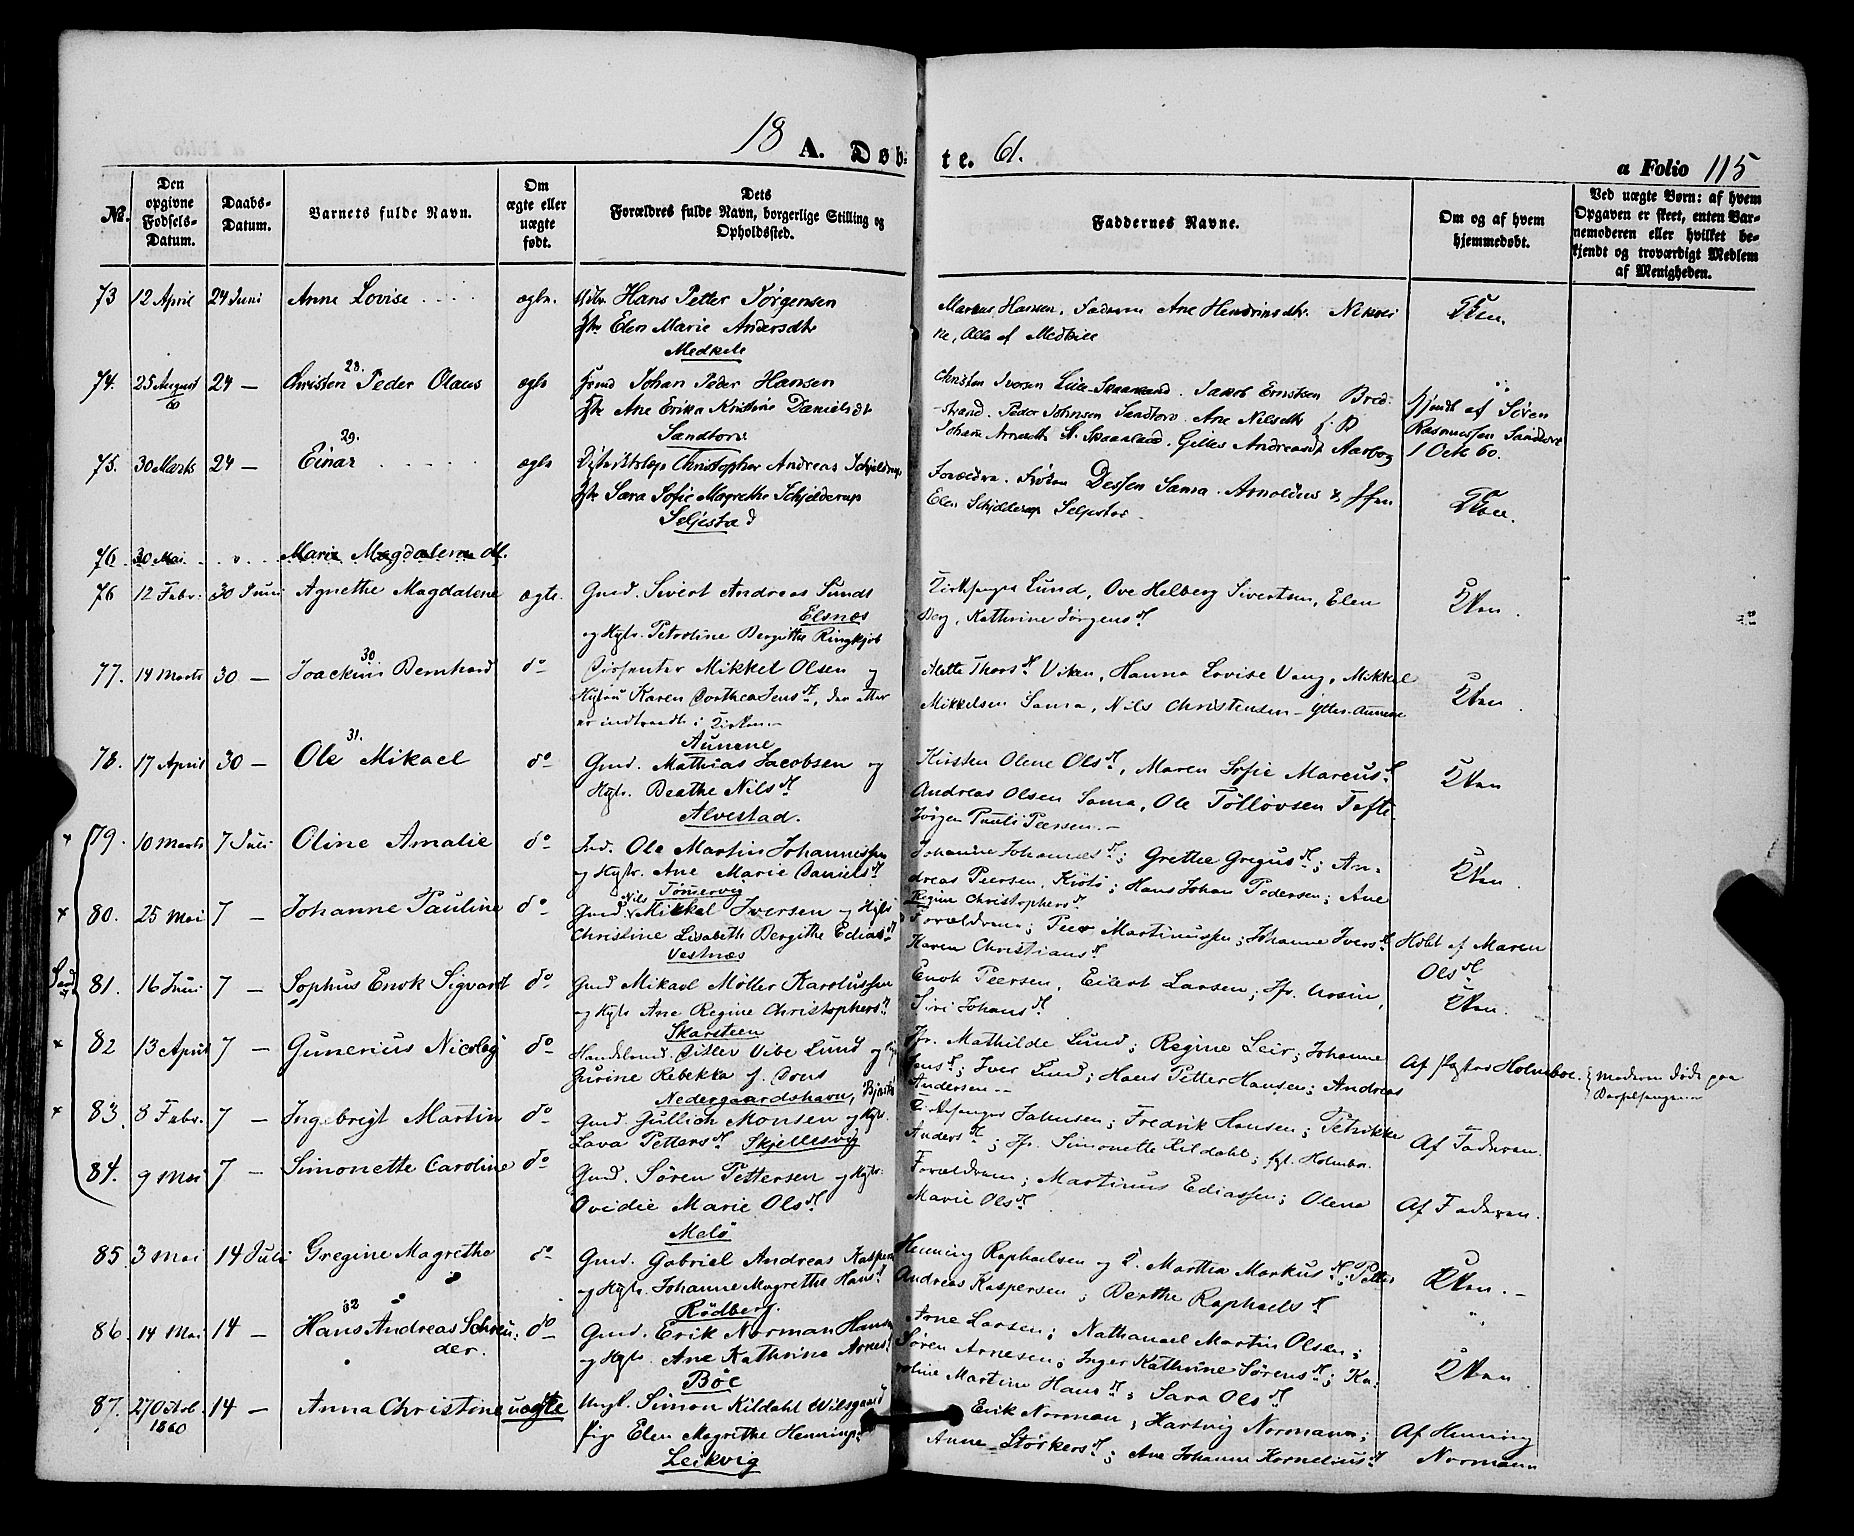 18 A. Døb- te. 61.
a Folio 115
No.
Den opgivne Fødsels-Datum.
Daabs-Datum.
Barnets fulde Navn.
Om ægte eller uægte født.
Dets Forældres fulde Navn, borgerlige Stilling og Opholdssted.
Faddernes Navne.
Om og af hvem hjemmedøbt.
Ved uægte Børn: af hvem Opgaven er skeet, enten Barnemoderen eller hvilket bekjendt og troværdigt Medlem af Menigheden.
73 12 April 24 Juni Anne Lovise ægte. Hans Petter Jørgensen
Elen Marie Andersdtr
Medkile
Markus Hansen, Faderen Ane Hendriksdtr.
Alle af Medkile
74. 25 August 60 24 — 28. Christen Peder Olaus ægte Johan Peder Hansen
Ane Erika Kristine Danielsdt
Sandtorv
Christen Iversen Lille Skaanland. Jakob Erntsen Bred-
strand. Peder Johnsen Sandtorv. Ane Nilsdtr
Johanna Arnesdtr St. Skaanland. Andreasdt Aarbog
hjemd af Søren
Rasmussen Sandtorv
1 Octr 60.
75. 30 Marts 24 — 29. Einar ægte Christopher Andreas Schjelderup
Sara Sofie Magrethe Schjelderup
Seljestad
Forældrene. Frøken Dessen Sama. Arnoldus & Jfr
Elen Schjelderup Seljestad
76. 30 Mai Marie Magdalena M.
76 12 Febr. 30 Juni Agnethe Magdalene ægte. Gmd. Sivert Andreas Lund
Elsnæs
og Hstr. Petroline Bergitte Ringkjøb
Kirkesanger Lund, Ove Helberg Sivertsen, Elen
Berg, Kathrine Jørgensdtr
77. 14 Marts 30 — 30 Joackim Bernhard do Mikkel Olsen og
Hstru Karen Dorthea Jensdtr, der atter
er indtraadt i Kirken.
Aunene
Mette Thorsdtr Viken, Hanna Lovise Vang, Mikkel
Mikkelsen Sama, Nils Christensen Ytter-Aunene
78. 17 April 30 — 31. Ole Mikael do Gmd. Mathias Jacobsen og
Hstr. Beathe Nilsdtr
Alvestad.
Kirsten Olene Olsdtr, Maren Sofie Marcusdtr
Andreas Olsen Sama, Ole Tølløvsen Tofte
Jørgen Pauli Peersen.
79. 10 Marts 7 Juli Oline Amalie do Ole Martin Johannessen
og Hstr. Ane Marie Danielsdtr
Tømmervig
Johanne Johannesdtr; Grethe Gregusdtr; An-
dreas Peersen, Krøtø; Hans Johan Pedersen; Ane
Regine Christophersdtr
80. 25 Mai 7 — Johanne Pauline do Gmd. Nils Mikkel Iversen og Hstr
Christine Lisabeth Bergithe Ediasdtr
Vestnæs
Forældrene; Peer Martinussen; Johanne Iversdtr
Karen Christiansdtr
Hdbt af Maren
Olsdtr
81. 16 Juni 7 — Sophus Enok Sigvardt do Gmd Mikael Møller Karolussen
og Hstr Ane Regine Christophersdtr
Skarsteen
Enok Peersen, Eilert Larsen; Jfr. Ursin,
Siri Johansdtr
82 13 April 7 — Gunerius Nicolaj do Handelsmd. Ditlev Vibe Lund og
Gurine Rebekka f. Dons
Nedergaardshavn,
Jfr. Mathilde Lund; Regine Leir; Johanne
Jensdtr; Iver Lund; Hans Petter Hansen; Andreas
Andersen
Af Pastor Holmboe.
Moderen døde paa
Barselsengen
83. 8 Febr. 7 — Ingebrigt Martin do Gmd. Gullich Monsen og Hstr.
Lava Pettersdtr Skjellesvig
Kirkesanger Johnsen; Fredrik Hansen; Petrikke
Andersdtr; Jfr. Simonette Kildahl; Holmboe.
Af Faderen.
84. 9 Mai 7 — Simonette Caroline do Gmd. Søren Pettersen og Hstr.
Ovidie Marie Olsdtr
Melø
Forældrene; Martinus Ediassen; Olene
Marie Olsdtr
Af Faderen.
85. 3 Mai 14 Juli Gregine Magrethe do Gmd. Gabriel Andreas Kaspersen
og Hstr. Johanne Magrethe Hansdtr
Rødberg.
Henning Raphaelsen og K. Martha Markusdtr; Petter
Andreas Kaspersen; Berthe Raphaelsdtr
86. 14 Mai 14 — 32 Hans Andreas Schreu-
der. do Gmd. Erik Norman Hansen
og Hstr. Ane Kathrina Arnesdtr
Bøe
Arne Larsen; Nathanael Martin Olsen;
Søren Arnesen; Inger Kathrine Sørensdtr; Ka-
roline Martine Hansdtr; Sara Olsdtr
87. 27 Octob. 1860 14 — Anna Christine uægte Ungk. Simon Kildahl Wilsgaard
Pige Elen Magrethe Hennings
Leikvig
Erik Norman; Hartvig Normann;
Anne Størkersdtr; Ane Johanne Korneliusdtr
Af Henning
Normann